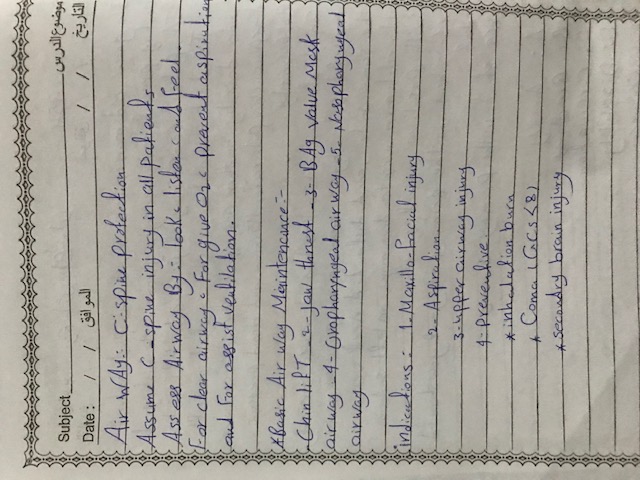 Subject موضوع الدرس
Date: / / الموافق / / التاريخ
Air WAy:- C-spine Protection
Assume C-spine injury in all patients
Assess Airway By:- Look & listen and feel
For clear airway & For give O2 & prevent aspiration
and For assist ventilation.
*Basic Air way Maintenance:-
- Chin liFT _ 2- Jaw thrust _ 3- BAg valve Mask
airway _ 4- Oropharyngeal airway _ 5- Nasopharyngeal
airway
indications: 1. Maxillo-Facial injury
2- Aspiration
3- upper airway injury
4- preventive
* inhalation burn
* Coma (GCS < 8)
* secondry brain injury